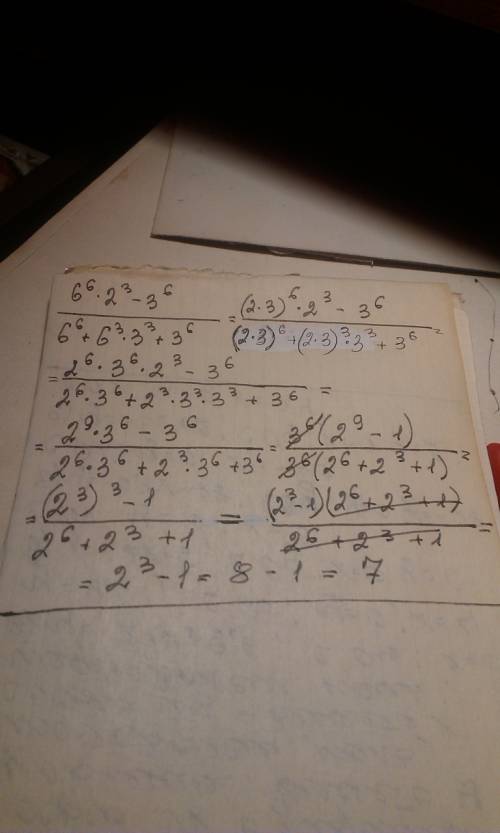 (6⁶·2³-3⁶)/(6⁶+6³·3³+3⁶) = ((2·3)⁶·2³-3⁶)/((2·3)⁶+(2·3)³·3³+3⁶) =
= (2⁶·3⁶·2³-3⁶)/(2⁶·3⁶+2³·3³·3³+3⁶) =
= (2⁹·3⁶-3⁶)/(2⁶·3⁶+2³·3⁶+3⁶) = (3⁶(2⁹-1))/(3⁶(2⁶+2³+1)) =
= ((2³)³-1)/(2⁶+2³+1) = ((2³-1)(2⁶+2³+1))/(2⁶+2³+1) =
= 2³-1 = 8-1 = 7